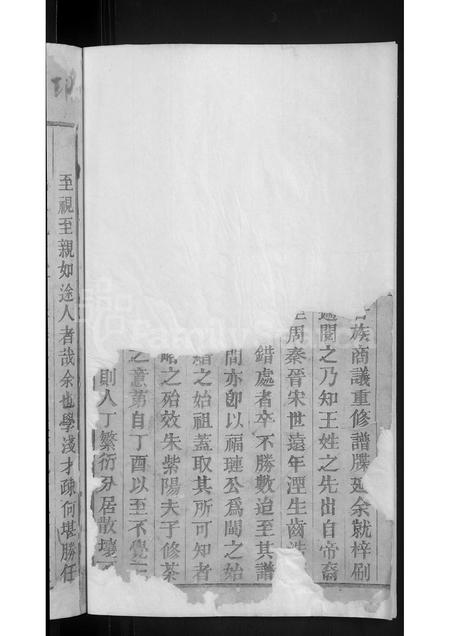 族商議重修譜牒延余就梓刷
閱之乃知王姓之先出自帝裔
周秦晉宋世遠年湮生齒
錯處者卒不勝數迨至其譜
間亦卽以福璉公爲閩之始
之始祖蓋取其所可知者
之殆效朱紫陽夫子修茶
之意第自丁酉以至不覺
則人丁繁衍分居散壤
至視至親如途人者哉余也學淺才疎何堪勝任